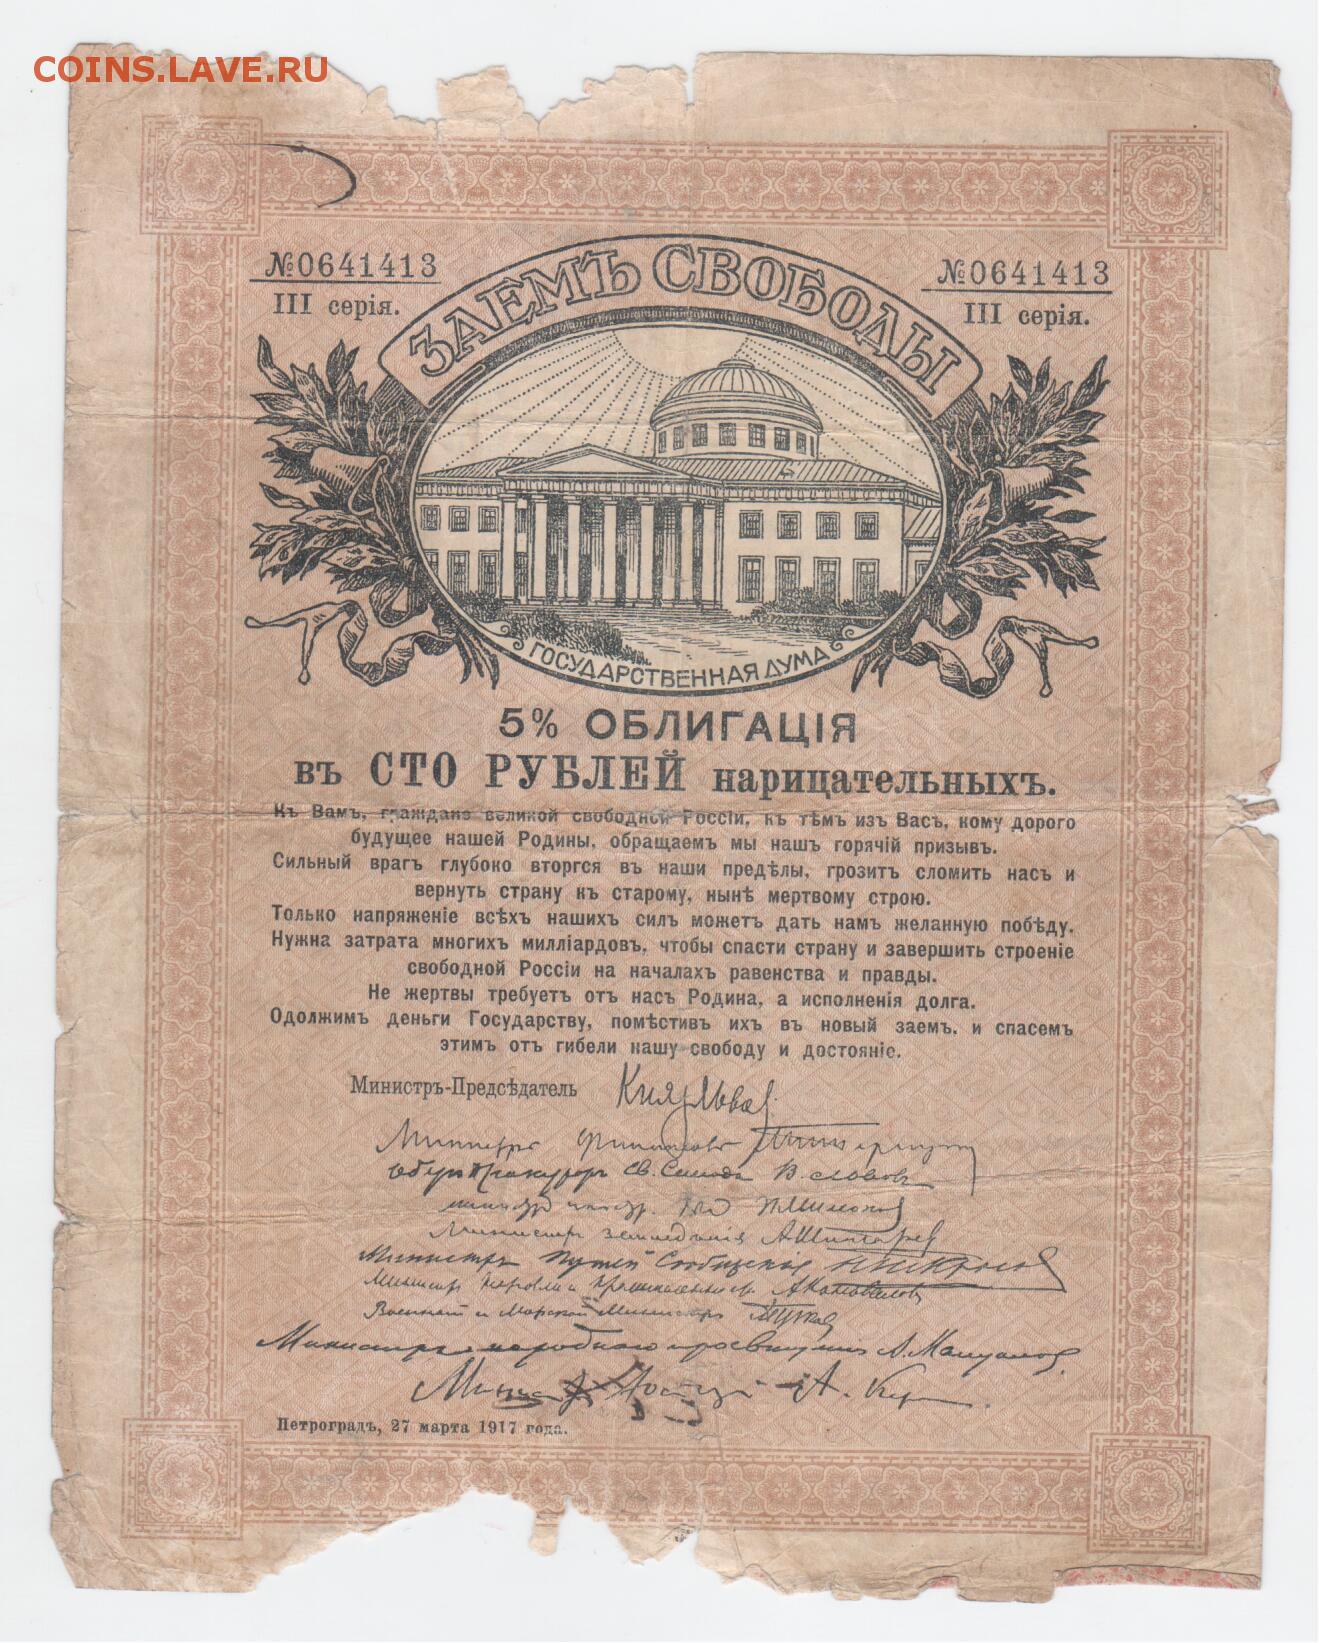 COINS.LAVE.RU
№0641413
III серія.
№0641413
III серія.
ЗАЕМЪ СВОБОДЫ
ГОСУДАРСТВЕННАЯ ДУМА
5% ОБЛИГАЦІЯ
въ СТО РУБЛЕЙ нарицательныхъ.
Къ Вамъ, граждане великой свободной Россіи, къ тѣмъ изъ Васъ, кому дорого
будущее нашей Родины, обращаемъ мы нашъ горячій призывъ.
Сильный врагъ глубоко вторгся въ наши предѣлы, грозитъ сломить насъ и
вернуть страну къ старому, нынѣ мертвому строю.
Только напряженіе всѣхъ нашихъ силъ можетъ дать намъ желанную побѣду.
Нужна затрата многихъ милліардовъ, чтобы спасти страну и завершить строеніе
свободной Россіи на началахъ равенства и правды.
Не жертвы требуетъ отъ насъ Родина, а исполненія долга.
Одолжимъ деньги Государству, помѣстивъ ихъ въ новый заемъ, и спасемъ
этимъ отъ гибели нашу свободу и достояніе.
Министръ-Предсѣдатель Князь Львов
Министръ Финансовъ
Оберъ Прокуроръ Св. Синода В. Львовъ
Министръ земледѣлія А Шингарев
Министръ Путей Сообщенія
Министр торговли и промышленности А Коновалов
Военный и Морской Министръ
Министръ народнаго просвѣщенія А. Мануиловъ.
Петроградъ, 27 марта 1917 года.